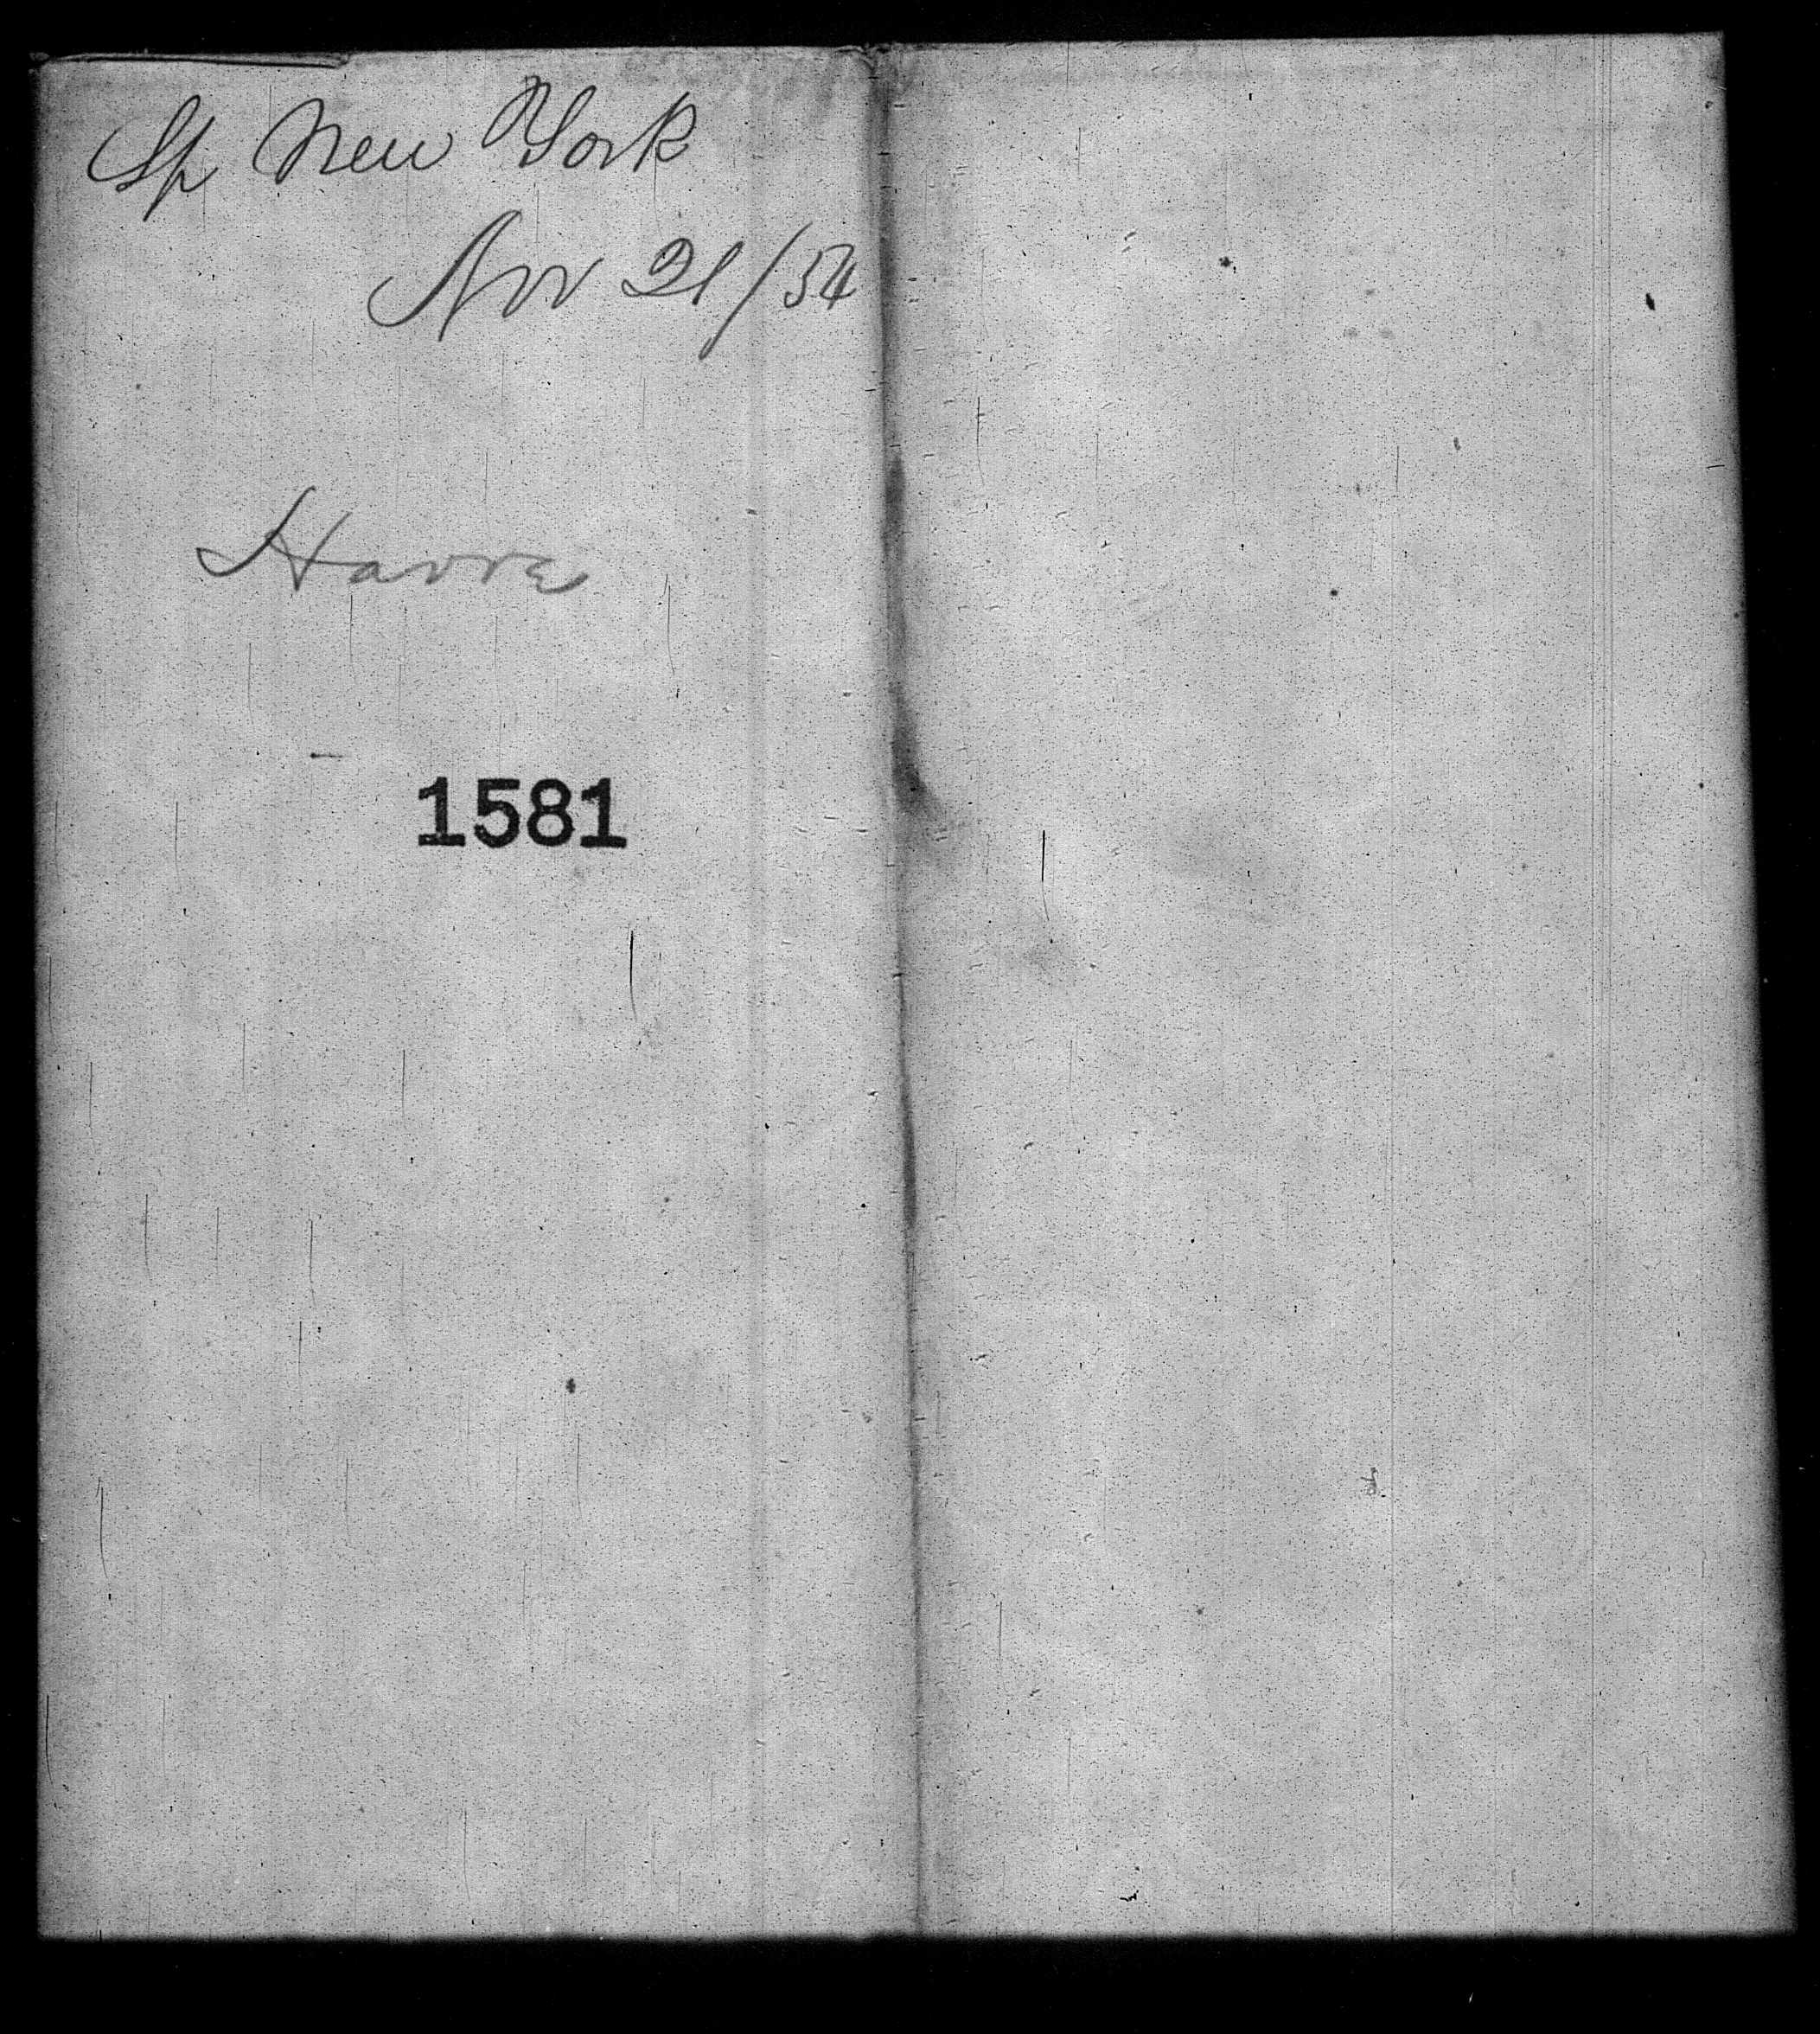 Sh New York
Nov 21/54
Havre
1581